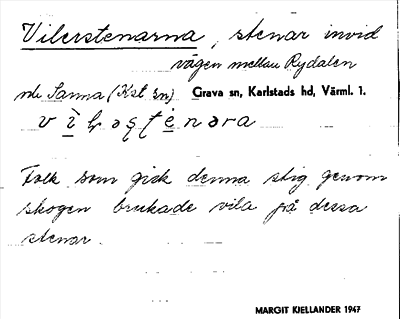 Vilerstenarna, stenar invid
vägen mellan Rydalen
och Sanna (Kst sn) Grava sn, Karlstads hd, Värml. 1.
Folk som gick denna stig genom
skogen brukade vila på dessa
stenar.
MARGIT KJELLANDER 1947